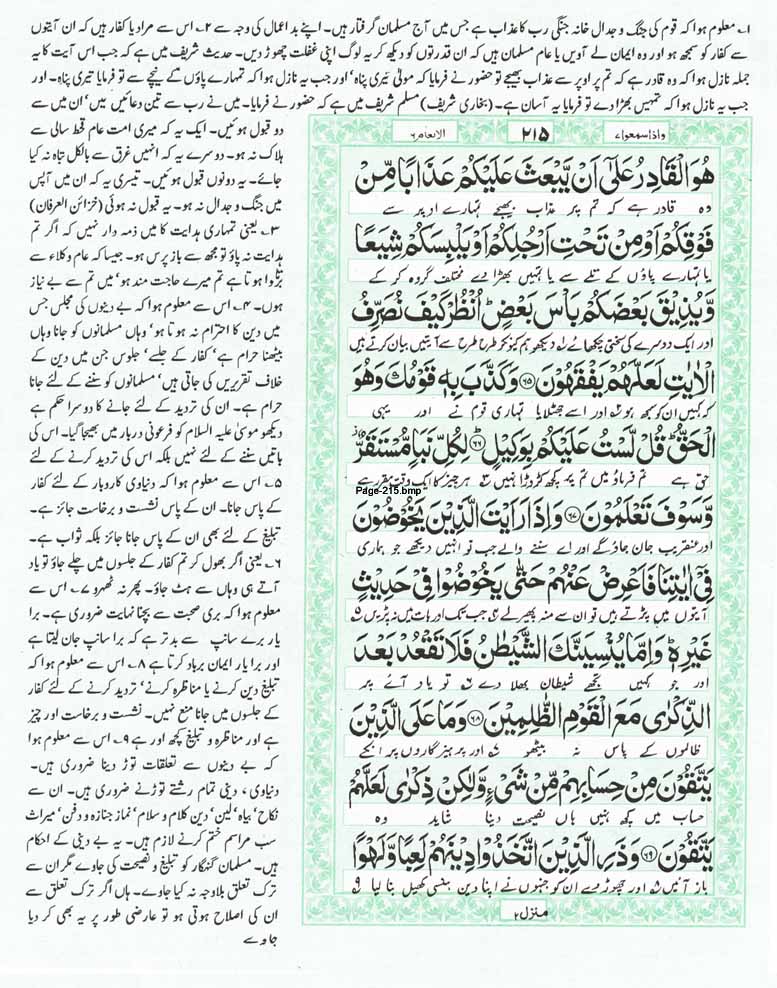 ۱۔ معلوم ہوا کہ قوم کی جنگ و جدال خانہ جنگی رب کا عذاب ہے جس میں آج مسلمان گرفتار ہیں۔ اپنے بد اعمال کی وجہ سے ۲۔ اس سے مراد یا کفار ہیں کہ ان آیتوں
سے کفار کو سمجھ ہو اور وہ ایمان لے آویں یا عام مسلمان ہیں کہ ان قدرتوں کو دیکھ کر یہ لوگ اپنی غفلت چھوڑ دیں۔ حدیث شریف میں ہے کہ جب اس آیت کا یہ
جملہ نازل ہوا کہ وہ قادر ہے کہ تم پر اوپر سے عذاب بھیجے تو حضور نے فرمایا کہ مولیٰ تیری پناہ، اور جب یہ نازل ہوا کہ تمہارے پاؤں کے نیچے سے تو فرمایا تیری پناہ۔ اور
جب یہ نازل ہوا کہ تمہیں بھڑا دے تو فرمایا یہ آسان ہے۔ (بخاری شریف) مسلم شریف میں ہے کہ حضور نے فرمایا۔ میں نے رب سے تین دعائیں میں، ان میں سے
دو قبول ہوئیں۔ ایک یہ کہ میری امت عام قحط سالی سے
ہلاک نہ ہو۔ دوسرے یہ کہ انہیں غرق سے بالکل تباہ نہ کیا
جائے۔ یہ دونوں قبول ہوئیں۔ تیسری یہ کہ ان میں آپس
میں جنگ و جدال نہ ہو۔ یہ قبول نہ ہوئی (خزائن العرفان)
۳۔ یعنی تمہاری ہدایت کا میں ذمہ دار نہیں کہ اگر تم
ہدایت نہ پاؤ تو مجھ سے باز پرس ہو۔ جیسا کہ عام وکلاء سے
ہوتا ہے تم میرے حاجت مند ہو، میں تم سے بے نیاز
ہوں۔ ۴۔ اس سے معلوم ہوا کہ بے دینوں کی مجلس جس
میں دین کا احترام نہ ہوتا ہو، وہاں مسلمانوں کو جانا وہاں
بیٹھنا حرام ہے، کفار کے جلسے، جلوس جن میں دین کے
خلاف تقریریں کی جاتی ہیں، مسلمانوں کو سننے کے لئے جانا
حرام ہے۔ ان کی تردید کے لئے جانے کا دوسرا حکم ہے
دیکھو موسیٰ علیہ السلام کو فرعونی دربار میں بھیجا گیا۔ اس کی
باتیں سننے کے لئے نہیں بلکہ اس کی تردید کرنے کے لئے
۵۔ اس سے معلوم ہوا کہ دنیاوی کاروبار کے لئے کفار
کے پاس جانا۔ ان کے پاس نشست و برخاست جائز ہے۔
تبلیغ کے لئے بھی ان کے پاس جانا جائز بلکہ ثواب ہے۔
۶۔ یعنی اگر بھول کر تم کفار کے جلسوں میں چلے جاؤ تو یاد
آتے ہی وہاں سے ہٹ جاؤ۔ پھر نہ ٹھہرو ۷۔ اس سے
معلوم ہوا کہ بری صحبت سے بچنا نہایت ضروری ہے۔ برا
یار برے سانپ سے بدتر ہے کہ برا سانپ جان لیتا ہے
اور برا یار ایمان برباد کرتا ہے ۸۔ اس سے معلوم ہوا کہ
تبلیغ دین کرنے یا مناظرہ کرنے، تردید کرنے کے لئے کفار
کے جلسوں میں جانا منع نہیں۔ نشست و برخاست اور چیز
ہے اور مناظرہ و تبلیغ کچھ اور ہے ۹۔ اس سے معلوم ہوا
کہ بے دینوں سے تعلقات توڑ دینا ضروری ہیں۔
دنیاوی، دینی تمام رشتے توڑنے ضروری ہیں۔ ان سے
نکاح، بیاہ، لین، دین کلام و سلام، نماز جنازہ و دفن، میراث
سب مراسم ختم کرنے لازم ہیں۔ یہ بے دینی کے احکام
ہیں۔ مسلمان گنہگار کو تبلیغ و نصیحت کی جاوے مگر ان سے
ترک تعلق بلاوجہ نہ کیا جاوے۔ ہاں اگر ترک تعلق سے
ان کی اصلاح ہوتی ہو تو عارضی طور پر یہ بھی کر دیا
جاوے
واذاسمعوا۷ ۲۱۵ الانعام۶
هُوَ الْقَادِرُ عَلٰۤی اَنْ یَّبْعَثَ عَلَیْكُمْ عَذَابًا مِّنْ
وہ قادر ہے کہ تم پر عذاب بھیجے تمہارے اوپر سے
فَوْقِكُمْ اَوْ مِنْ تَحْتِ اَرْجُلِكُمْ اَوْ یَلْبِسَكُمْ شِیَعًا
یا تمہارے پاؤں کے تلے سے یا تمہیں بھڑا دے مختلف گروہ کر کے
وَّیُذِیْقَ بَعْضَكُمْ بَاْسَ بَعْضٍؕ اُنْظُرْ كَیْفَ نُصَرِّفُ
اور ایک دوسرے کی سختی چکھائے ۱؎ دیکھو ہم کیونکر طرح طرح سے آیتیں بیان کرتے ہیں
الْاٰیٰتِ لَعَلَّهُمْ یَفْقَهُوْنَ ﴿۶۵﴾ وَكَذَّبَ بِهٖ قَوْمُكَ وَهُوَ
کہ کہیں ان کو سمجھ ہو ۲؎ اور اسے جھٹلایا تمہاری قوم نے اور یہی
الْحَقُّؕ قُلْ لَّسْتُ عَلَیْكُمْ بِوَكِیْلٍؕ ﴿۶۶﴾ لِكُلِّ نَبَاٍ مُّسْتَقَرٌّؗ
حق ہے تم فرماؤ میں تم پر کچھ کڑوڑا نہیں ۳؎ ہر چیز کا ایک وقت مقرر ہے
Page-215.bmp
وَّسَوْفَ تَعْلَمُوْنَ ﴿۶۷﴾ وَاِذَا رَاَیْتَ الَّذِیْنَ یَخُوْضُوْنَ
اور عنقریب جان جاؤ گے اور اے سننے والے جب تو انہیں دیکھے جو ہماری
فِیْۤ اٰیٰتِنَا فَاَعْرِضْ عَنْهُمْ حَتّٰی یَخُوْضُوْا فِیْ حَدِیْثٍ
آیتوں میں پڑتے ہیں تو ان سے منہ پھیر لے ۴؎ جب تک اور بات میں نہ پڑیں ۵؎
غَیْرِهٖؕ وَاِمَّا یُنْسِیَنَّكَ الشَّیْطٰنُ فَلَا تَقْعُدْ بَعْدَ
اور جو کہیں تجھے شیطان بھلا دے ۶؎ تو یاد آئے پر
الذِّكْرٰی مَعَ الْقَوْمِ الظّٰلِمِیْنَ ﴿۶۸﴾ وَمَا عَلَی الَّذِیْنَ
ظالموں کے پاس نہ بیٹھو ۷؎ اور پرہیزگاروں پر انکے
یَتَّقُوْنَ مِنْ حِسَابِهِمْ مِّنْ شَیْءٍ وَّلٰكِنْ ذِكْرٰی لَعَلَّهُمْ
حساب میں کچھ نہیں ہاں نصیحت دینا شاید وہ
یَتَّقُوْنَ ﴿۶۹﴾ وَذَرِ الَّذِیْنَ اتَّخَذُوْا دِیْنَهُمْ لَعِبًا وَّلَهْوًا
باز آئیں ۸؎ اور چھوڑ دے ان کو جنہوں نے اپنا دین ہنسی کھیل بنا لیا ۹؎
منزل۲